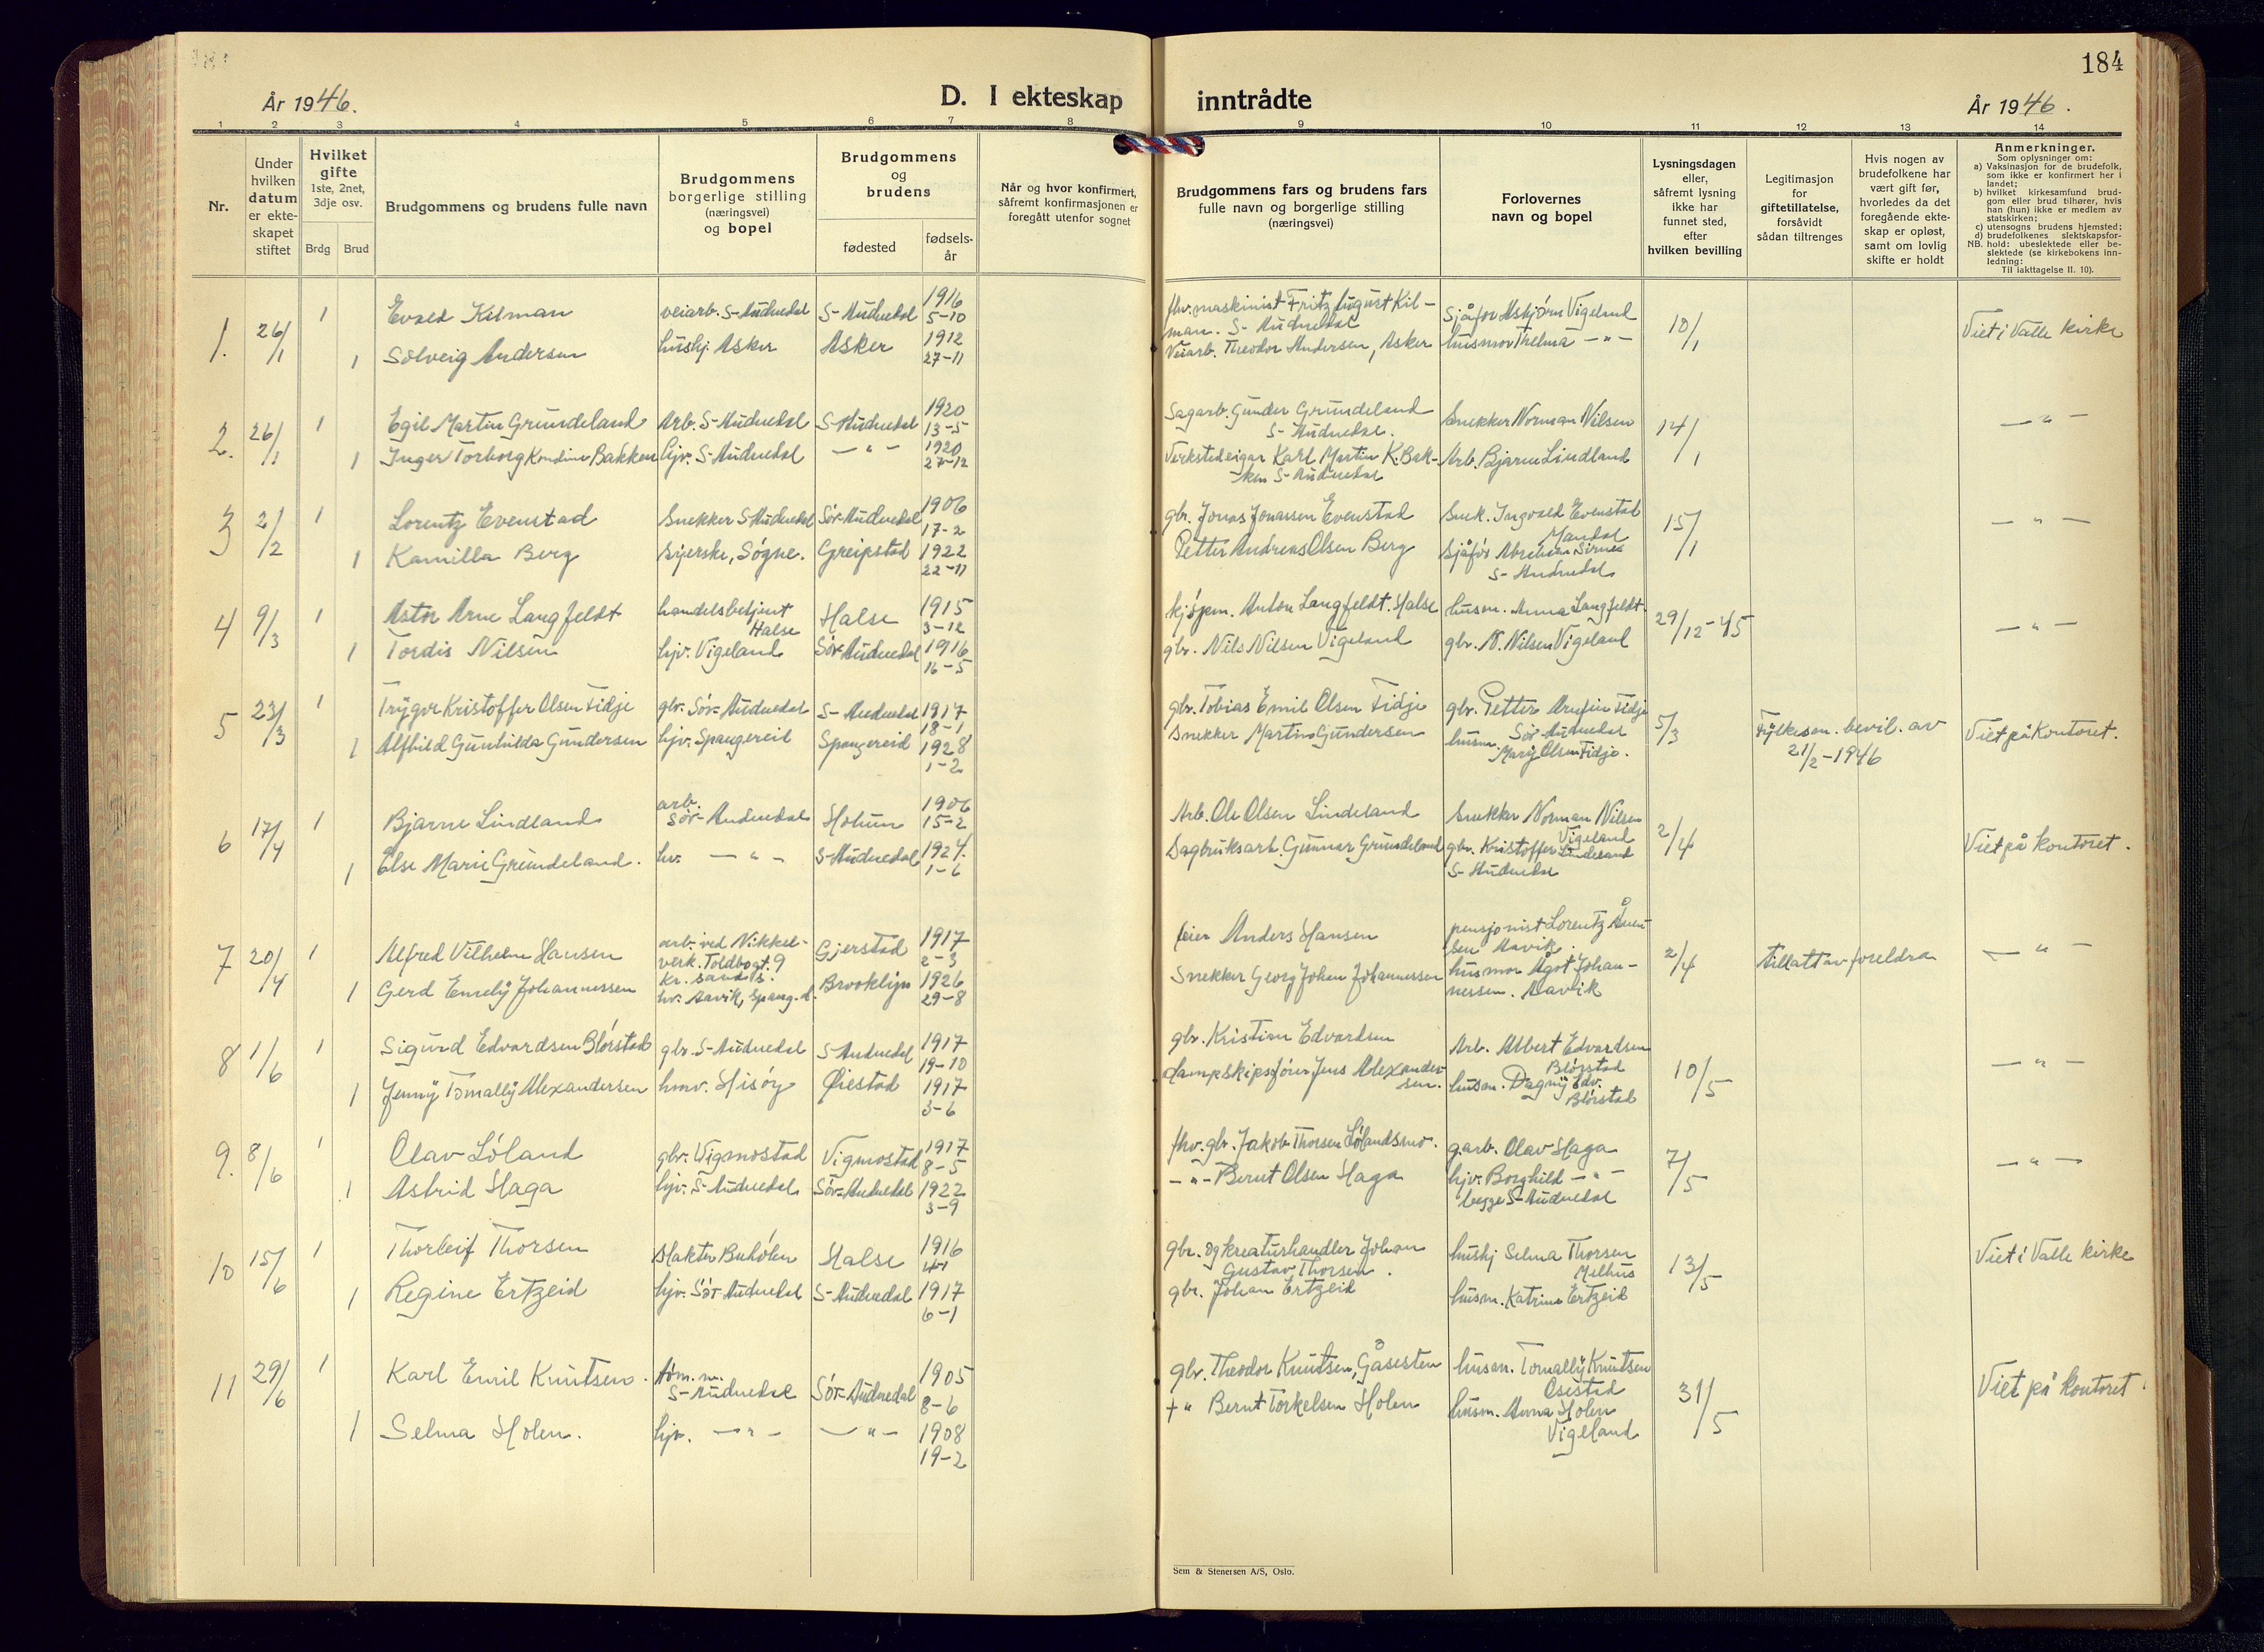 184
År 1946.
D. I ekteskap inntrådte
År 1946.
1 2 3 4 5 6 7 8 9 10 11 12 13 14
Nr.
Under
hvilken
datum
er ekte-
skapet
stiftet
Hvilket
gifte
1ste, 2net,
3dje osv.
Brdg Brud
Brudgommens og brudens fulle navn
Brudgommens
borgerlige stilling
(næringsvei)
og bopel
Brudgommens
og
brudens
fødested
fødsels-
år
Når og hvor konfirmert,
såfremt konfirmasjonen er
foregått utenfor sognet
Brudgommens fars og brudens fars
fulle navn og borgerlige stilling
(næringsvei)
Forlovernes
navn og bopel
Lysningsdagen
eller,
såfremt lysning
ikke har
funnet sted,
efter
hvilken bevilling
Legitimasjon
for
giftetillatelse,
forsåvidt
sådan tiltrenges
Hvis nogen av
brudefolkene har
vært gift før,
hvorledes da det
foregående ekte-
skap er opløst,
samt om lovlig
skifte er holdt
Anmerkninger.
Som oplysninger om:
a) Vaksinasjon for de brudefolk,
som ikke er konfirmert her i
landet;
b) hvilket kirkesamfund brud-
gom eller brud tilhører, hvis
han (hun) ikke er medlem av
statskirken;
c) utensogns brudens hjemsted;
d) brudefolkenes slektskapsfor-
NB. hold: ubeslektede eller be-
slektede (se kirkebokens inn-
ledning:
Til iakttagelse II. 10).
1. 26/1 1 Evald Kilman veiarb. S-Audnedal S-Audnedal 1916 5-10
fhv. maskinist Fritz August Kil-
man. S-Audnedal
Sjåfør Asbjørn Vigeland 10/1 Viet i Valle kirke
1 Solveig Andersen hushj. Asker Asker 1912 27-11
Veiarb. Theodor Andersen, Asker husmor Thelma —"—
2. 26/1 1 Egil Martin Grundeland Arb. S-Audnedal S-Audnedal 1920 13-5
Sagarb. Gunder Grundeland
S-Audnedal.
Snekker Norman Nilsen 14/1 —"—
1 Inger Torborg Kondine Bakken hjv. S-Audnedal —"— 1920 27-12
Verkstedeigar Karl Martin K. Bak-
ken S-Audnedal
Arb. Bjarne Lindland
3 2/2 1 Lorentz Evenstad Snekker S-Audnedal Sør-Audnedal 1906 17-2
gbr. Jonas Jonassen Evenstad
Snek. Ingvald Evenstad
Mandal
15/1 —"—
1 Kamilla Berg Syerske, Søgne. Greipstad 1922 22-11
Petter Andreas Olsen Berg
Sjåfør Abraham
S-Audnedal
4 9/3 1 Arne Langfeldt handelsbetjent
Halse
Halse 1915 3-12
kjøpm. Anton Langfeldt. Halse husm. Anna Langfeldt. 29/12-45 —"—
1 Tordis Nilsen hjv. Vigeland Sør-Audnedal 1916 16-5
gbr. Nils Nilsen Vigeland gbr. N. Nilsen Vigeland
5 23/3 1 Trygve Kristoffer Olsen Fidje gbr. Sør-Audnedal S-Audnedal 1917 18-1
gbr. Tobias Emil Olsen Fidje
gbr. Petter Arnfin Fidje
Sør-Audnedal
5/3 Fylkesm. bevil. av
21/2-1946
Viet på Kontoret.
1 Alfhild Gunhilda Gundersen hjv. Spangereid Spangereid 1928 1-2
Snekker Martin Gundersen
husm. Mary Olsen Fidje.
6 17/4 1 Bjarne Lindland arb.
Sør-Audnedal
Holum 1906 15-2
Arb. Ole Olsen Lindeland
Snekker Norman Nilsen
Vigeland
2/4 Viet på kontoret.
1 Else Marie Grundeland. hv. —"— S-Audnedal 1924. 1-6
Sagbruksarb. Gunnar Grundeland
gbr. Kristoffer Lindeland
S-Audnedal
7 20/4 1 Alfred Vilhelm Hansen arb. ved Nikkel-
verk. Toldbogt. 9
Kr.sands.
Gjerstad 1917 2-3
feier Anders Hansen
pensjonist Lorentz Aaven-
sen Aavik.
2/4 tillatt av foreldra —"—
1 Gerd Emely Johannessen hv. Aavik, Spang.d. Brooklyn 1926 29-8
Snekker Georg Johan Johannessen
husmor Agot Johan-
nessen. Aavik
8 1/6 1 Sigurd Edvardsen Blørstad gbr. S-Audnedal S-Audnedal 1917 19-10
gbr. Kristian Edvardsen
Arb. Albert Edvardsen
Blørstad
10/5 —"—
1 Jenny Tomally Alexandersen hmv. Hisøy Øiestad 1917 3-6
dampskipsfører Jens Alexander-
sen.
husm. Dagny Edv.
Blørstad
9. 8/6 1 Olav Løland gbr. Vigmostad Vigmostad 1917 8-5
fhv. gbr. Jakob Thorsen Lølandsmo. g.arb. Olav Haga 7/5 —"—
1 Astrid Haga hjv. S-Audnedal Sør-Audnedal 1922 3-9
—"— Bernt Olsen Haga hjv. Borghild —"—
begge S-Audnedal
10 15/6 1 Thorleif Thorsen Slakter Buhølen Halse 1916
gbr. og kreaturhandler Johan
Gustav Thorsen.
hushj Selma Thorsen
Melhus
13/5 Viet i Valle kirke
1 Regine Ertzeid hjv. Sør-Audnedal S-Audnedal 1917 6-1
gbr. Johan Ertzeid husm. Katrine Ertzeid
11 29/6 1 Karl Emil Knutsen. tøm.m.
S-Audnedal
Sør-Audnedal 1905 8-6
gbr. Theodor Knutsen, Gåsesten
husm. Tomally Knutsen
Osestad
31/5 Viet på kontoret.
1 Selma Holen. hjv. —"— —"— 1908 19-2
+ " Bernt Torkelsen Holen
husm. Anna Holen
Vigeland
Sem & Stenersen A/S, Oslo.